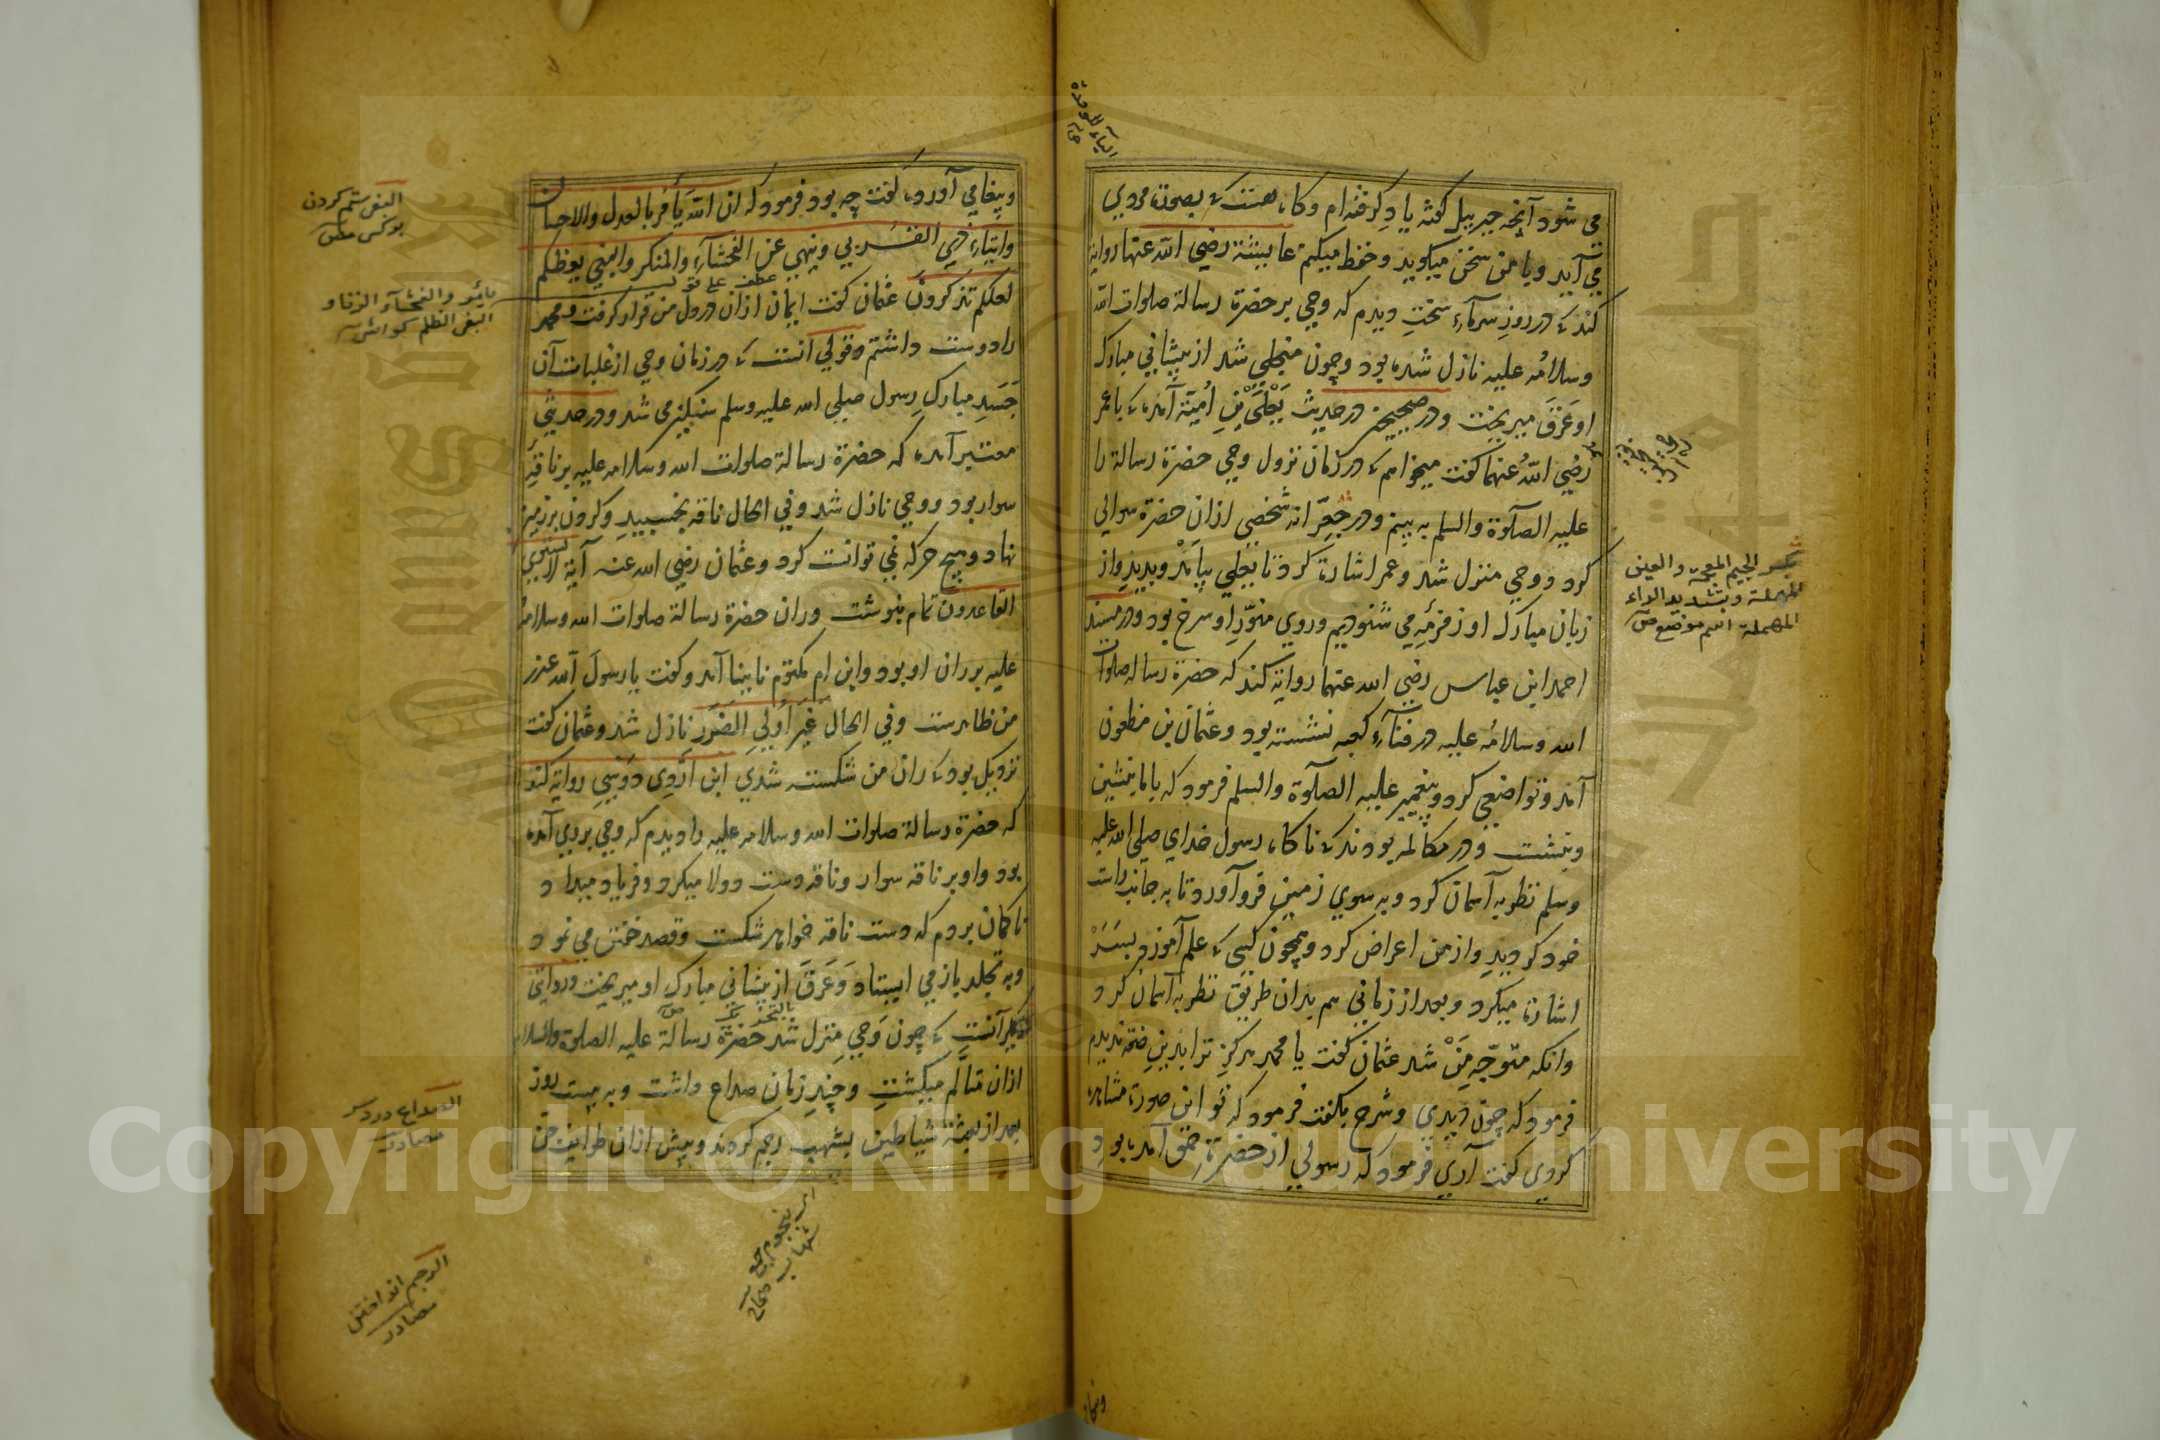 می شود آنچه جبرییل گفته یاد گرفته ام و گاه هست که بصورة مردی
می آید و با من سخن میگوید و حفظ میکنم عایشة رضی الله عنها روایة
کند که در روز سرمآء سخت دیدم که وحی بر حضرة رسالة صلوات الله
وسلامُه علیه نازل شده بود و چون منجلی شد از پیشانی مبارک
او عَرَق میریخت و در صحیحین در حدیث یَعْلَی بْنِ اُمیّة آمده که با عمر
رضی اللهُ عنهما گفت میخواهم که در زمان نزول وحی حضرة رسالة را
علیه الصلوة والسلم به بینم و در جِعِرّانه شخصی ازان حضرة سوالی
کرد و وحی منزل شد و عمر اشارة کرد تا یعلی بیامد و بدید و از
زبان مبارک او زفرئه می شنودیم و روی منوّر او سرخ بود و در مسند
احمد ابن عباس رضی الله عنهما روایة کند که حضرة رساله صلوات
الله وسلامُه علیه در فنآء کعبه نشسته بود و عثمان بن مظعون
آمد و تواضعی کرد و پیغمبر علیه الصلوة والسلم فرمود که بیا بنشین
و بنشست و در مکالمه بودند که ناگاه رسول خدای صلی الله علیه
وسلم نظر به آسمان کرد و به سوی زمین فرو آورد تا به جانب راست
خود گردید و از من اعراض کرد و همچون کسی که علم آموزد بسَرْ
اشارة میکرد و بعد از زمانی هم بدان طریق نظر به آسمان کرد
وانکه متوجّه مَنْ شد عثمان گفت یا محمد هرگز ترا بدین صفة ندیدم
فرمود که چون دیدی و شرح بگفت فرمود که تو این صورة مشاهده
کردی گفت آری فرمود که رسولی از حضرة حق آمده بود
الیآء الموحدة
بکسر الجیم المعجمة والعین
المهملة وبتشدید الراء
المهملة اسم موضع ص
و پیغامی آورد گفت چه بود فرمود که ان الله یأمُر بالعدل والاحسان
وایتاءِ ذی القُربی وینهی عن الفحشآء والمنکر والبغی یعظکم
لعلکم تذکرون عثمان گفت ایمان ازان در دل من قرار گرفت و محمد
را دوست داشتم و قولی آنست که در زمان وحی از غلبات آن
جَسَدِ مبارک رسول صلی الله علیه وسلم سنگین می شد و در حدیثی
معتبر آمده که حضرة رسالة صلوات الله وسلامه علیه بر ناقه
سوار بود و وحی نازل شد و فی الحال ناقه بخسبید و گردن بر زمین
نهاد و هیچ حرکة نمی توانست کرد و عثمان رضی الله عنه آیة لایستوی
القاعدون تمام بنوشت و ران حضرة رسالة صلوات الله وسلامه
علیه بر ران او بود و ابن ام مکتوم نابینا آمد و گفت یا رسول الله عذر
من ظاهرست و فی الحال غیر اُولی الضَرَر نازل شد و عثمان گفت
نزدیک بود که ران من شکسته شدی ابن اَرْوی دَوْسی روایة کند
که حضرة رسالة صلوات الله وسلامه علیه را دیدم که وحی بر وی آمده
بود و او بر ناقه سوار و ناقه دست دولا میکرد و فریاد میداد
تا گمان بردم که دست ناقه خواهد شکست و قصد خفتن می نمود
و به تجلد باز می ایستاد و عَرَق از پیشانی مبارک او میریخت و روایتی
دیگر آنست که چون وَحی منزل شد حضرة رسالة علیه الصلوة والسلام
ازان متألم میگشت و چند زمان صداع داشت و به بیست روز
بعد از بعثة شیاطین بشهب رجم کردند و پیش ازان طوایف جن
عطف علی قوله
البغی ستم کردن
بر کسی
یأمر والفحشآء الزنا و
البغی الظلم کواشی
الصداع درد سر
مصادر
الرجم انداختن
مصادر
شهاب صحاح